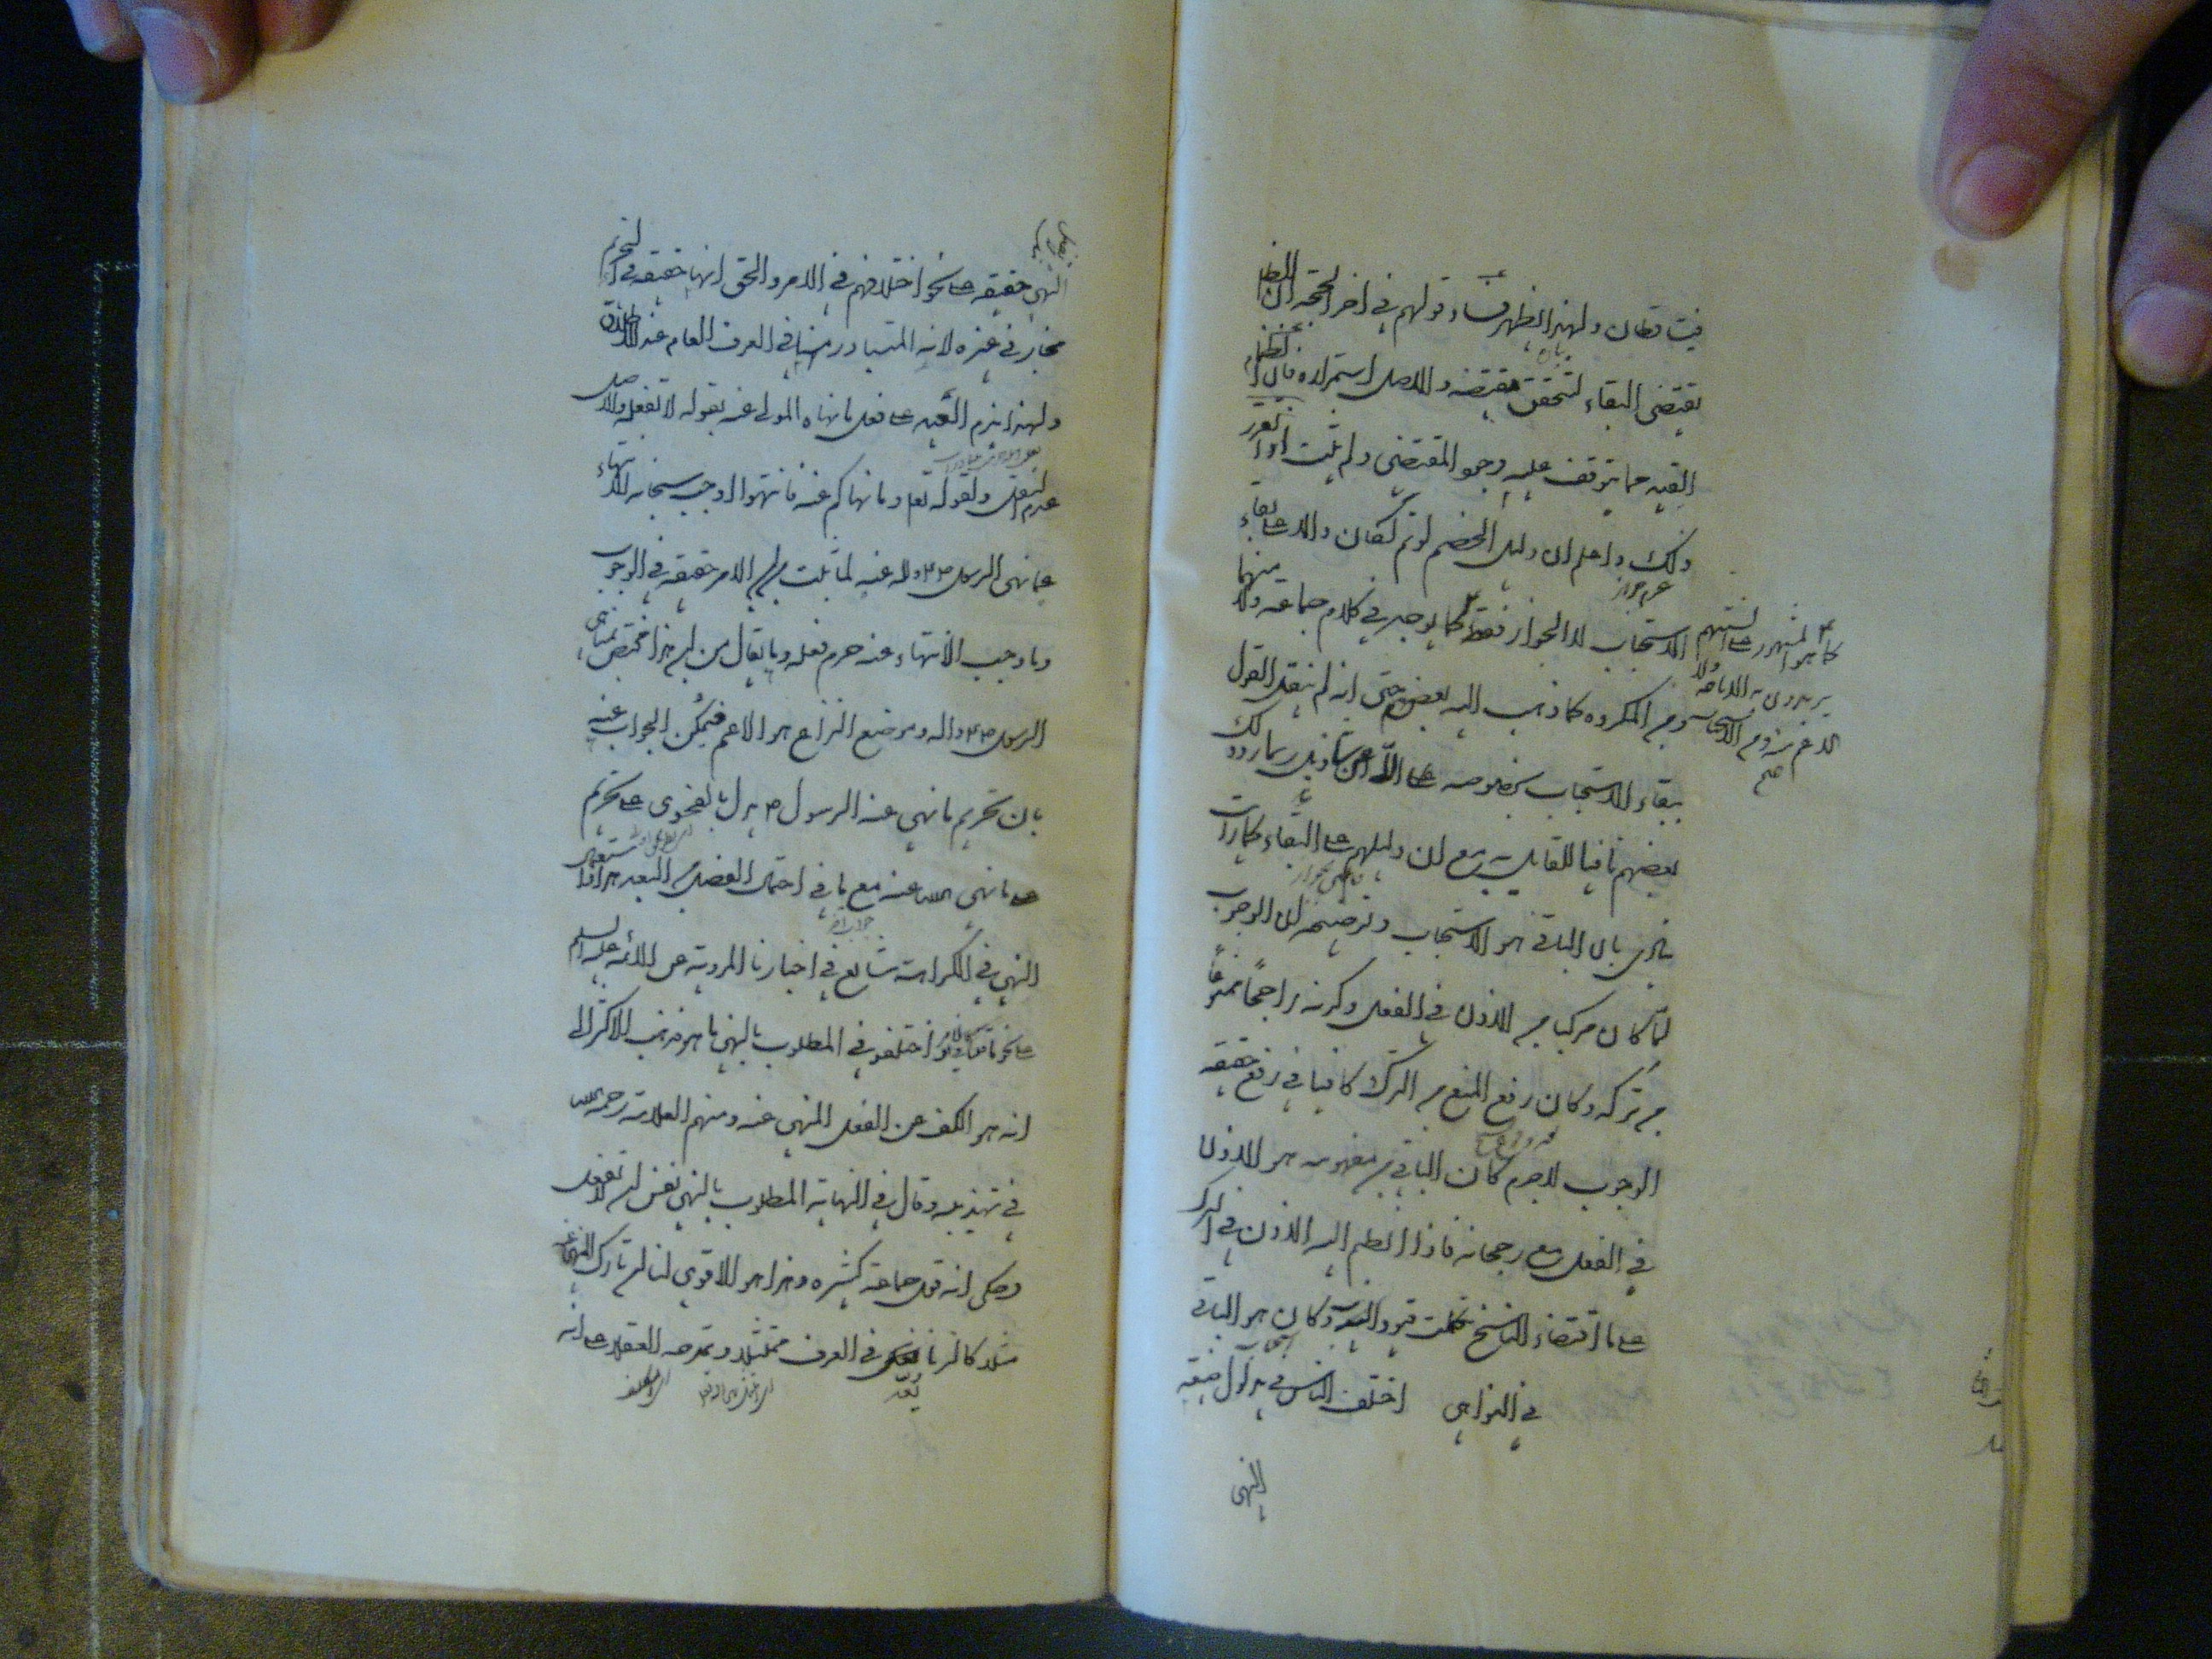 فيتساقطان ولهذا يظهر فساد قولهم في اخر الحجة ان الظ
يقتضي البقاء لتحقق مقتضيه والاصل استمراره فان انضمام
القيد مما يتوقف عليه وجود المقتضي ولم يثبت اذا تقرر
ذلك واعلم ان دليل الخصم لو تم لكان دالا على بقاء
الاستحباب لا الجواز فقط كما يوجد في كلام جماعة ولا منهما
كما هو المشهور على السنتهم
يريدون به الاباحة ولا
الاعم منه ومن الاستحباب
صح
ومن المكروه كما ذهب اليه بعض حتى انه لم ينقل القول
ببقاء الاستحباب بخصوصه الا عن شاذ بل ربما رد ذلك
بعضهم نافيا للقايل به مع ان دليلهم على البقاء كما رأيت
ينادي بان الباقي هو الاستحباب وتوضيحه ان الوجوب
لما كان مركبا من الاذن في الفعل وكونه راجحا ممنوعا
من تركه وكان رفع المنع من الترك كافيا في رفع حقيقة
الوجوب لاجرم كان الباقي من مفهومه هو الاذن
في الفعل مع رجحانه فاذا انضم اليه الاذن في الترك
على ما اقتضاه الناسخ تكملت قيود الندب وكان هو الباقي
في النواهي اختلف الناس في مدلول صيغة
النهي
النهي حقيقة على نحو اختلافهم في الامر والحق انها حقيقة في التحريم
مجاز في غيره لانه المتبادر منها في العرف العام عند الاطلاق
ولهذا يذم العبد على فعل ما نهاه المولى عنه بقوله لا تفعله والاصل
عدم النقل ولقوله تعالى وما نهاكم عنه فانتهوا اوجب سبحانه الانتهاء
عما نهى الرسول ص واله عنه لما ثبت من ان الامر حقيقة في الوجوب
وما وجب الانتهاء عنه حرم فعله وما يقال من ان هذا مختص بمناهي
الرسول ص واله وموضع النزاع هو الاعم فيمكن الجواب عنه
بان تحريم ما نهى عنه الرسول ص يدل بالفحوى على تحريم
ما نهى الله عنه مع ما في احتمال الفصل من البعد هذا واستعمال
النهي في الكراهة شايع في اخبارنا المروية عن الائمة عليهم السلم
على نحو ما قلناه في الامر اختلفوا في المطلوب بالنهي ما هو فذهب الاكثر الى
انه هو الكف عن الفعل المنهي عنه ومنهم العلامة رحمه الله
في تهذيبه وقال في النهاية المطلوب بالنهي نفس ان لا تفعل
وحكى انه قول جماعة كثيره وهذا هو الاقوى لنا ان تارك المنهي عنه
مثلا كالزنا يعد في العرف ممتثلا ويمدحه العقلاء على انه